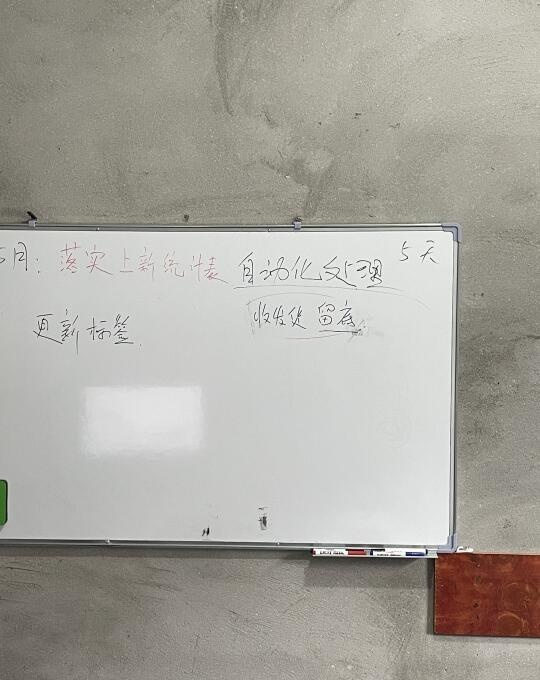 5月：落实上新统计表 自动化处理 5天
收发货 留底
更新标签